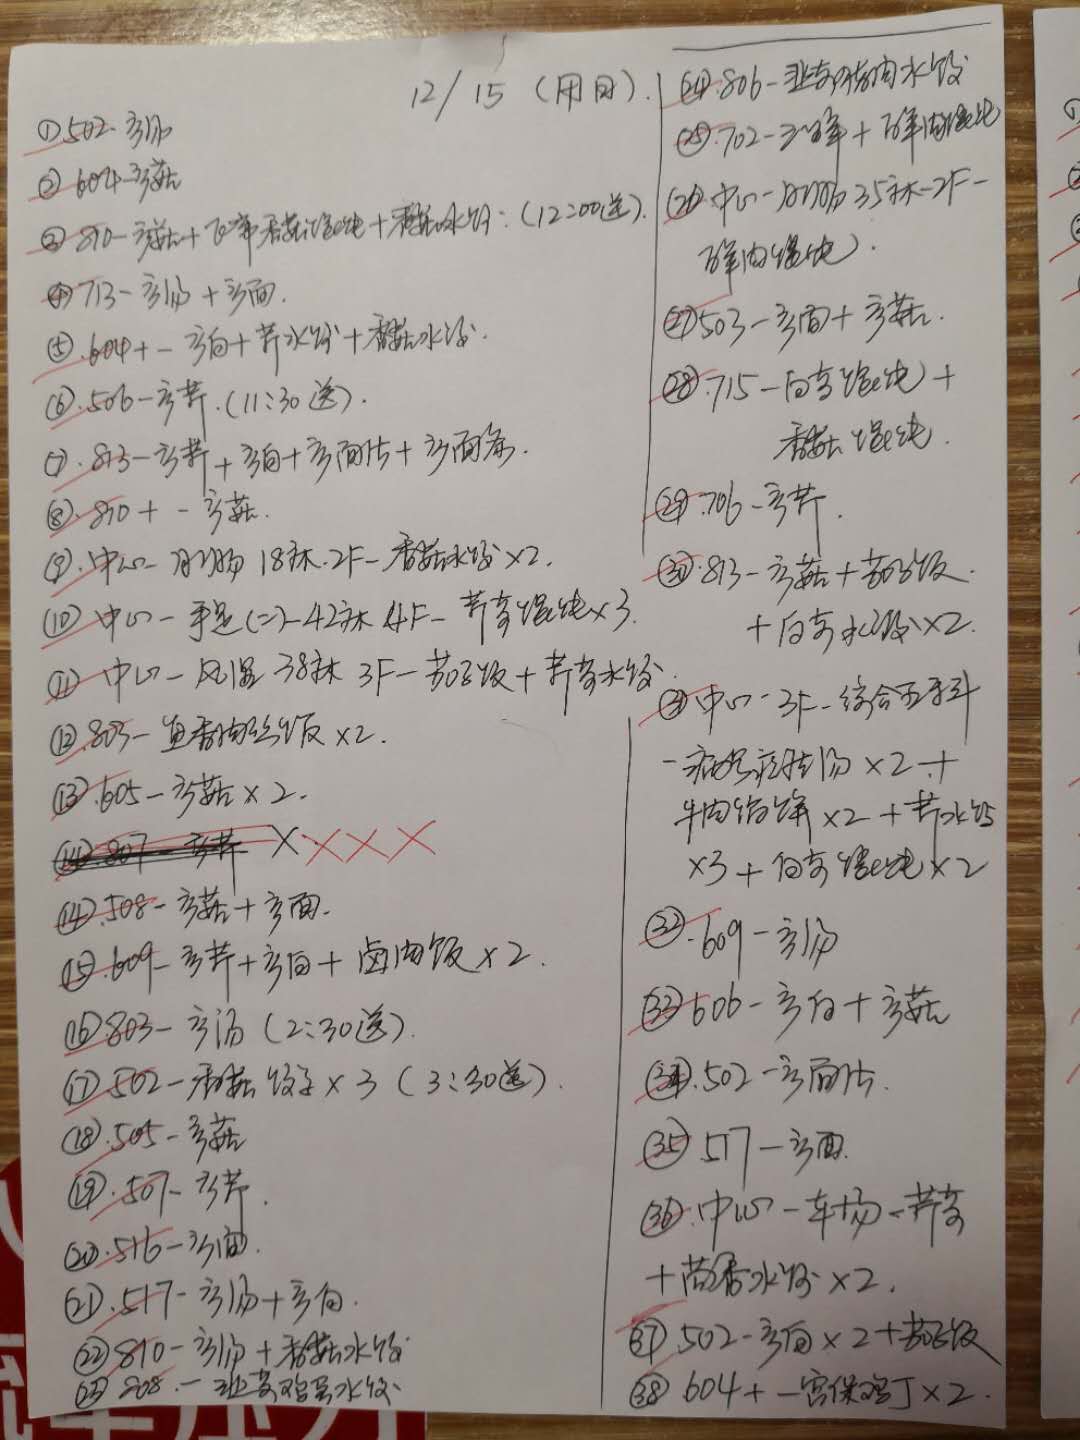 12/15 (周日).
①502-彡汤
②604-彡菇
③810-彡菇+香菇馄饨+香菇水饺 (12:00送).
④713-彡汤+彡面.
⑤.604+-彡白+芹水饺+香菇水饺.
⑥.506-彡芹.(11:30送).
⑦.813-彡芹+彡白+彡面片+彡面条.
⑧.810+-彡菇.
⑨.中心-胃肠 18床.2F-香菇水饺×2.
⑩中心-手足(二)-42床4F-芹菜馄饨×3.
⑪中心-风湿 38床 3F-茄子饭+芹菜水饺.
⑫.803-鱼香肉丝饭×2.
⑬.605-彡菇×2.
⑭.807-彡芹 ××××
⑭.508-彡菇+彡面.
⑮.609-彡芹+彡白+卤肉饭×2.
⑯.803-彡汤(2:30送).
⑰.502-香菇饺子×3(3:30送).
⑱.505-彡菇
⑲.507-彡芹.
⑳.516-彡面.
㉑.517-彡汤+彡白.
㉒810-彡汤+香菇水饺
㉓808.-韭菜鸡蛋水饺
㉔.806-韭菜猪肉水饺
㉕.702-彡鲜+馄饨
中心-胃肠35床-2F-
馄饨).
㉗503-彡面+彡菇.
㉘.715-白菜馄饨)+
香菇馄饨.
㉙.706-彡芹.
㉚.813-彡菇+茄子饭.
+白菜水饺×2.
㉛中心-3F-综合
-汤×2+
牛肉馅饼×2+芹水饺
×3+白菜馄饨×2
㉜.609-彡汤
㉝606-彡白+彡菇
㉞.502-彡面片.
㉟.517-彡面.
㊱.中心-车场-芹菜
+茴香水饺×2.
㊲502-彡白×2+茄子饭
㊳604+-宫保鸡丁×2.